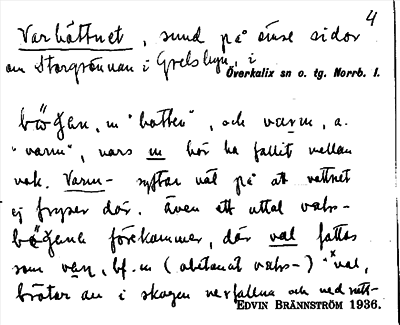 4
Varbåttnet, sund på ömse sidor
om Storgrönnan i Grelsbyn, i
Överkalix sn o. tg. Norrb. l.
m "botten", och varm, a.
"varm", vars m bör ha fallit mellan
vok. Varm- syftar väl på att vattnet
ej fryser där. Även ett uttal
förekommer, där val fattas
som bf. m (obetonat) "val,
bråtar av i skogen nerfallna och ned
EDVIN BRÄNNSTRÖM 1936.